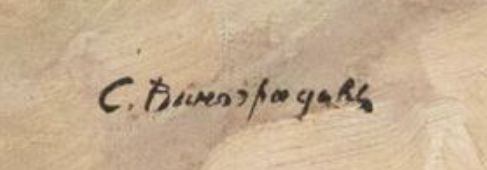 С. Виноградовъ